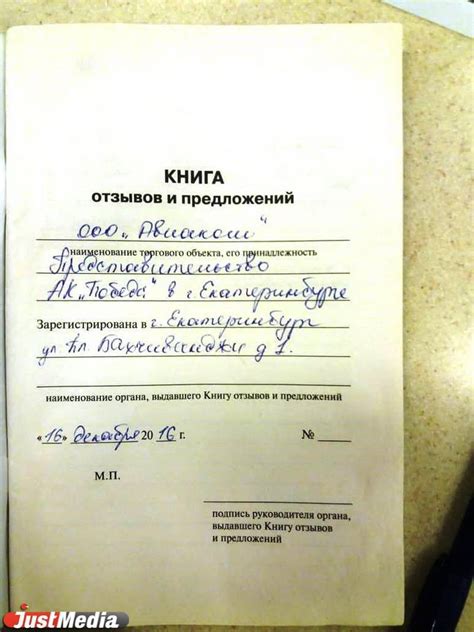 КНИГА
отзывов и предложений
ООО "Авиаком"
наименование торгового объекта, его принадлежность
Представительство
АК "Победа" в г. Екатеринбурге
Зарегистрирована в г. Екатеринбург
ул. Пл. Бахчиванджи д 1.
наименование органа, выдавшего Книгу отзывов и предложений
«16» декабря 2016 г. №
М.П.
подпись руководителя органа,
выдавшего Книгу отзывов
и предложений
JustMedia